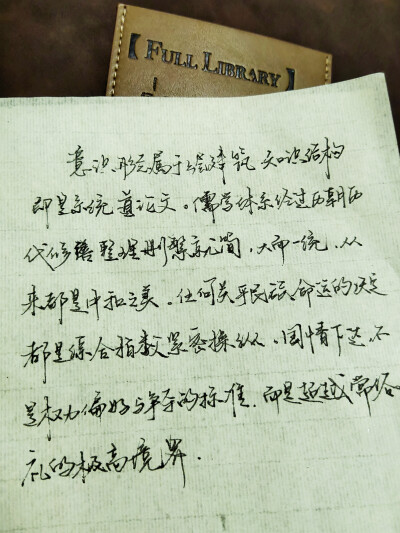 【FULL LIBRARY】
意识形态属于上层建筑 知识结构
即是系统道论文。儒学体系经过历朝历
代修缮整理删繁就简,大而一统,从
来都是中和之美。任何关乎民族命运的决定
都是综合指数紧密操纵,国情下,不
是权力偏好与争夺的标准,而是超越常伦
礼的极高境界.